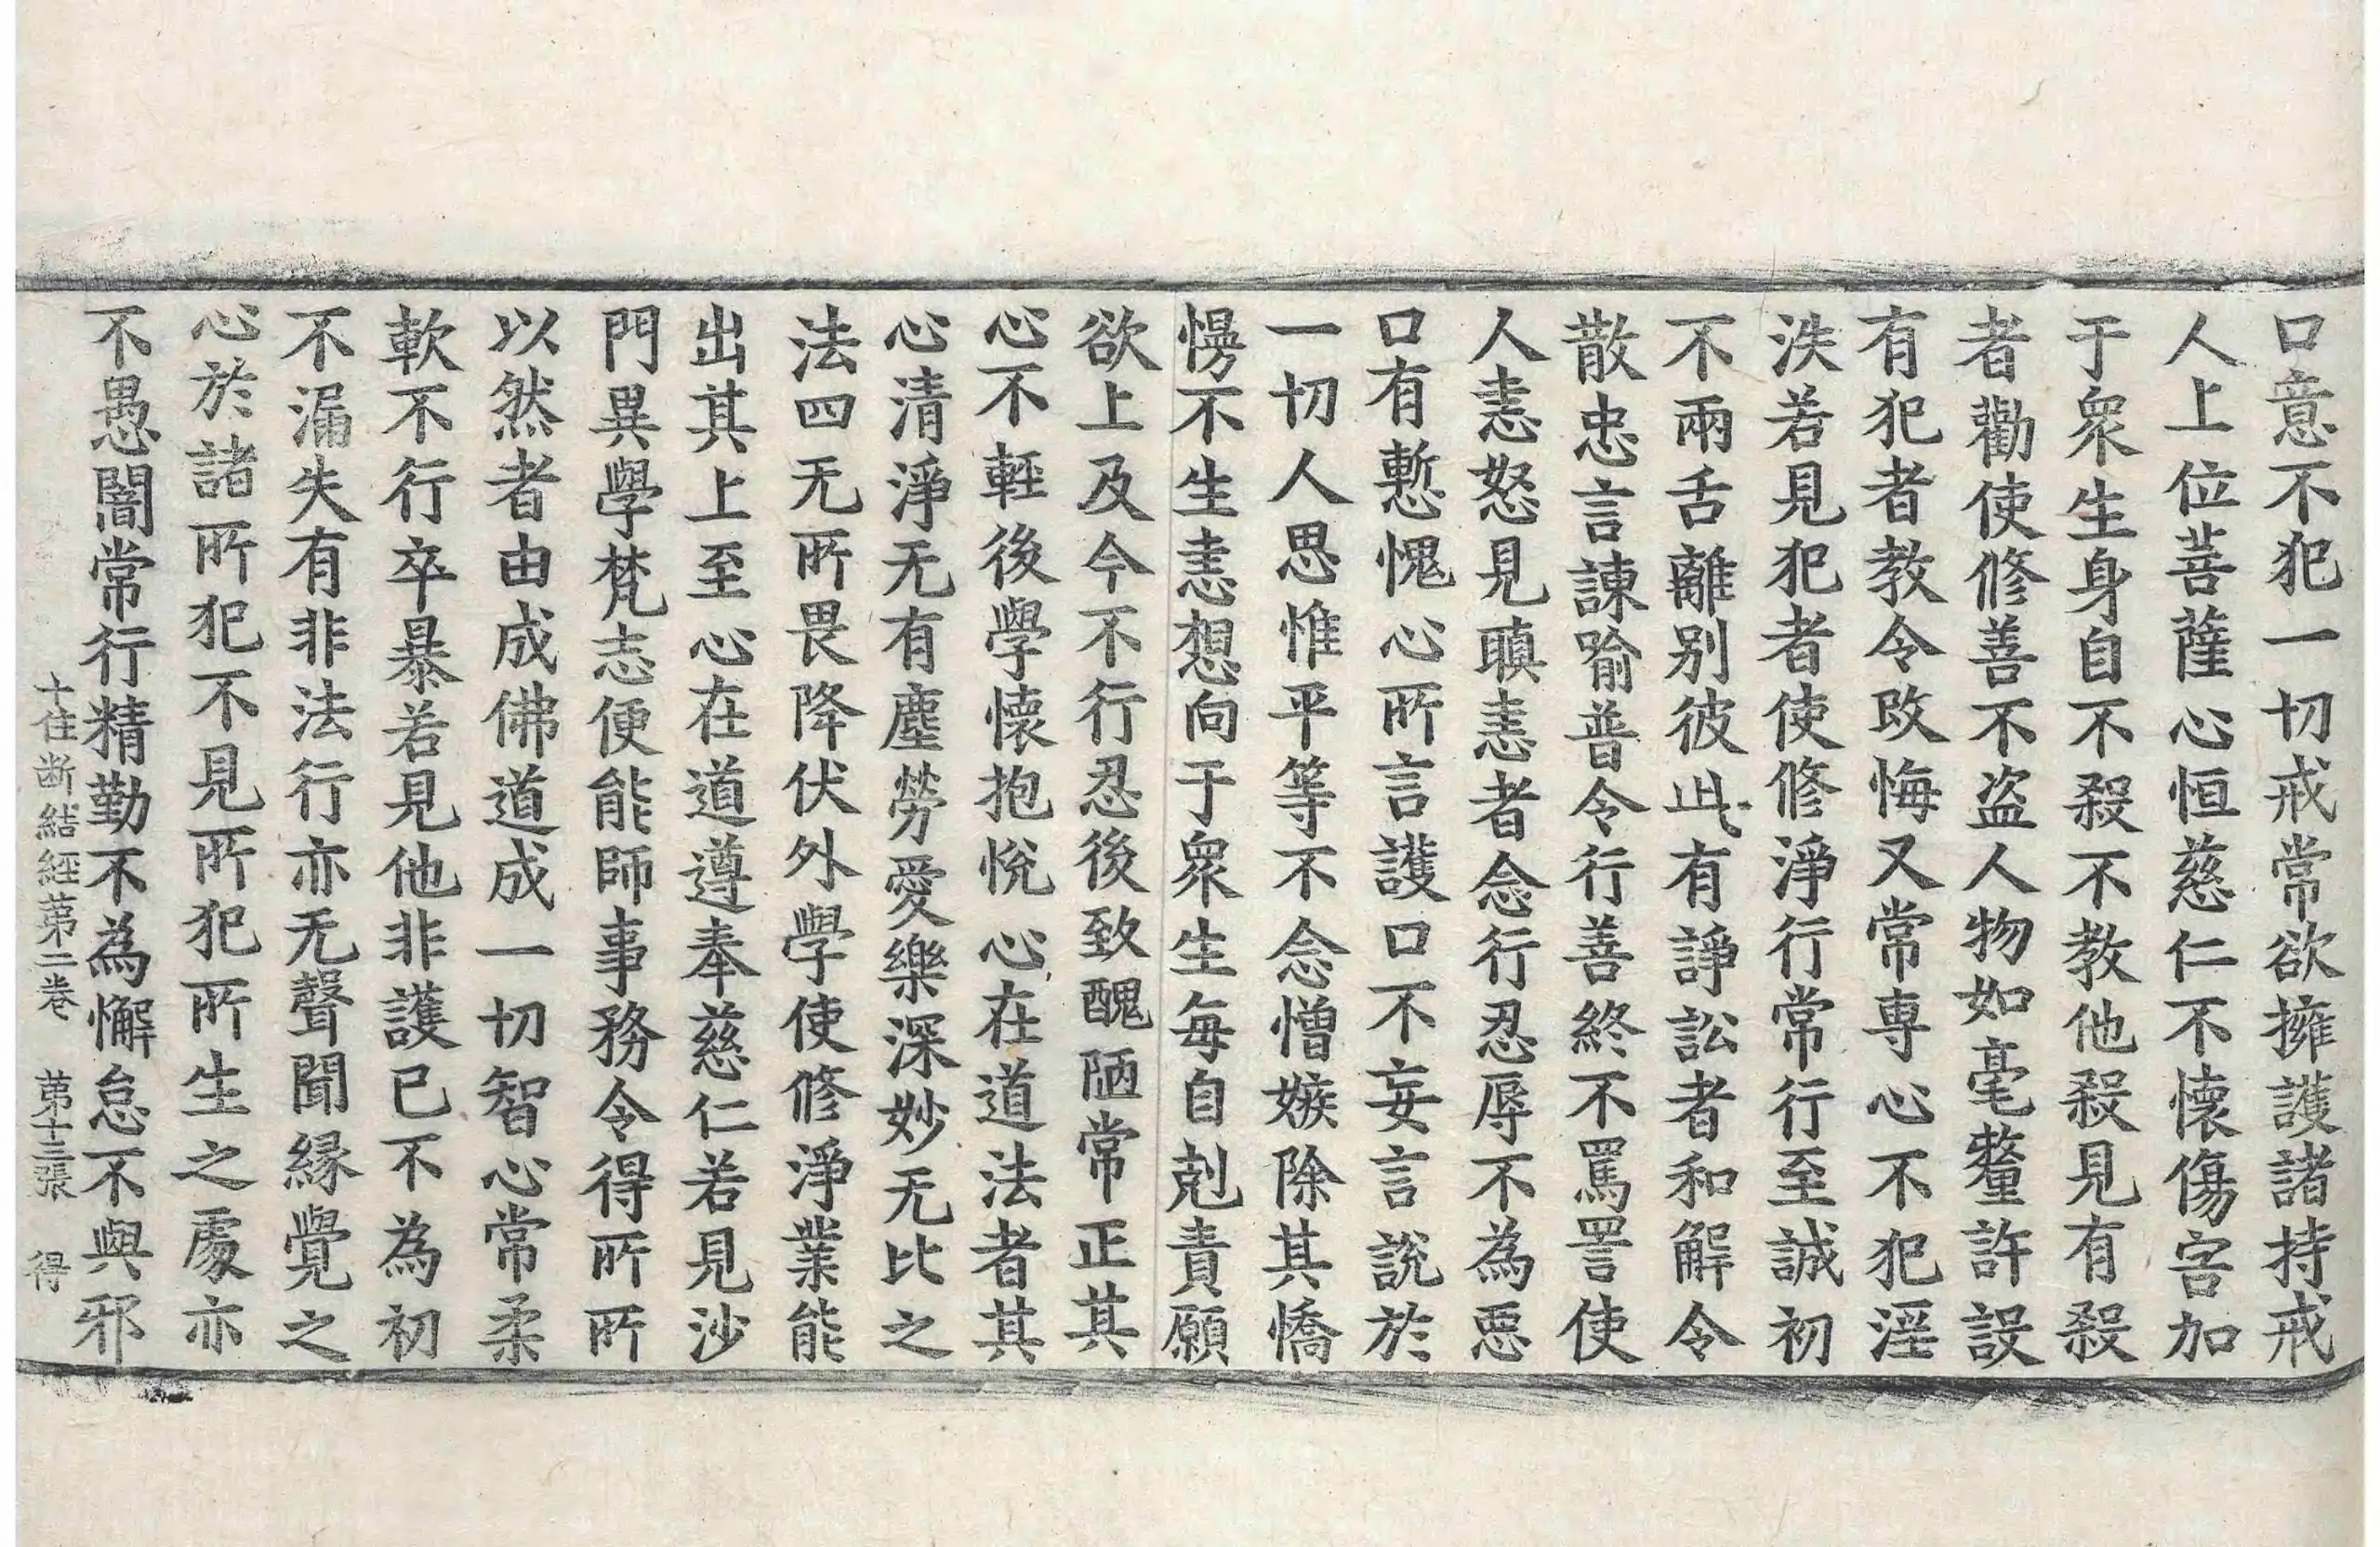 口意不犯一切戒常欲擁護諸持戒
人上位菩薩心恒慈仁不懷傷害加
于衆生身自不殺不教他殺見有殺
者勸使修善不盜人物如毫釐許設
有犯者教令改悔又常專心不犯淫
泆若見犯者使修淨行常行至誠初
不兩舌離別彼此有諍訟者和解令
散忠言諫喻普令行善終不罵詈使
人恚怒見瞋恚者念行忍辱不為惡
口有慙愧心所言護口不妄言說於
一切人思惟平等不念憎嫉除其憍
慢不生恚想向于衆生每自剋責願
欲上及今不行忍後致醜陋常正其
心不輕後學懷抱悅心在道法者其
心清淨无有塵勞愛樂深妙无比之
法四无所畏降伏外學使修淨業能
出其上至心在道遵奉慈仁若見沙
門異學梵志便能師事務令得所所
以然者由成佛道成一切智心常柔
軟不行卒暴若見他非護已不為初
不漏失有非法行亦无聲聞緣覺之
心於諸所犯不見所犯所生之處亦
不愚闇常行精勤不為懈怠不與邪
十住断結經第二卷 第十三張 得